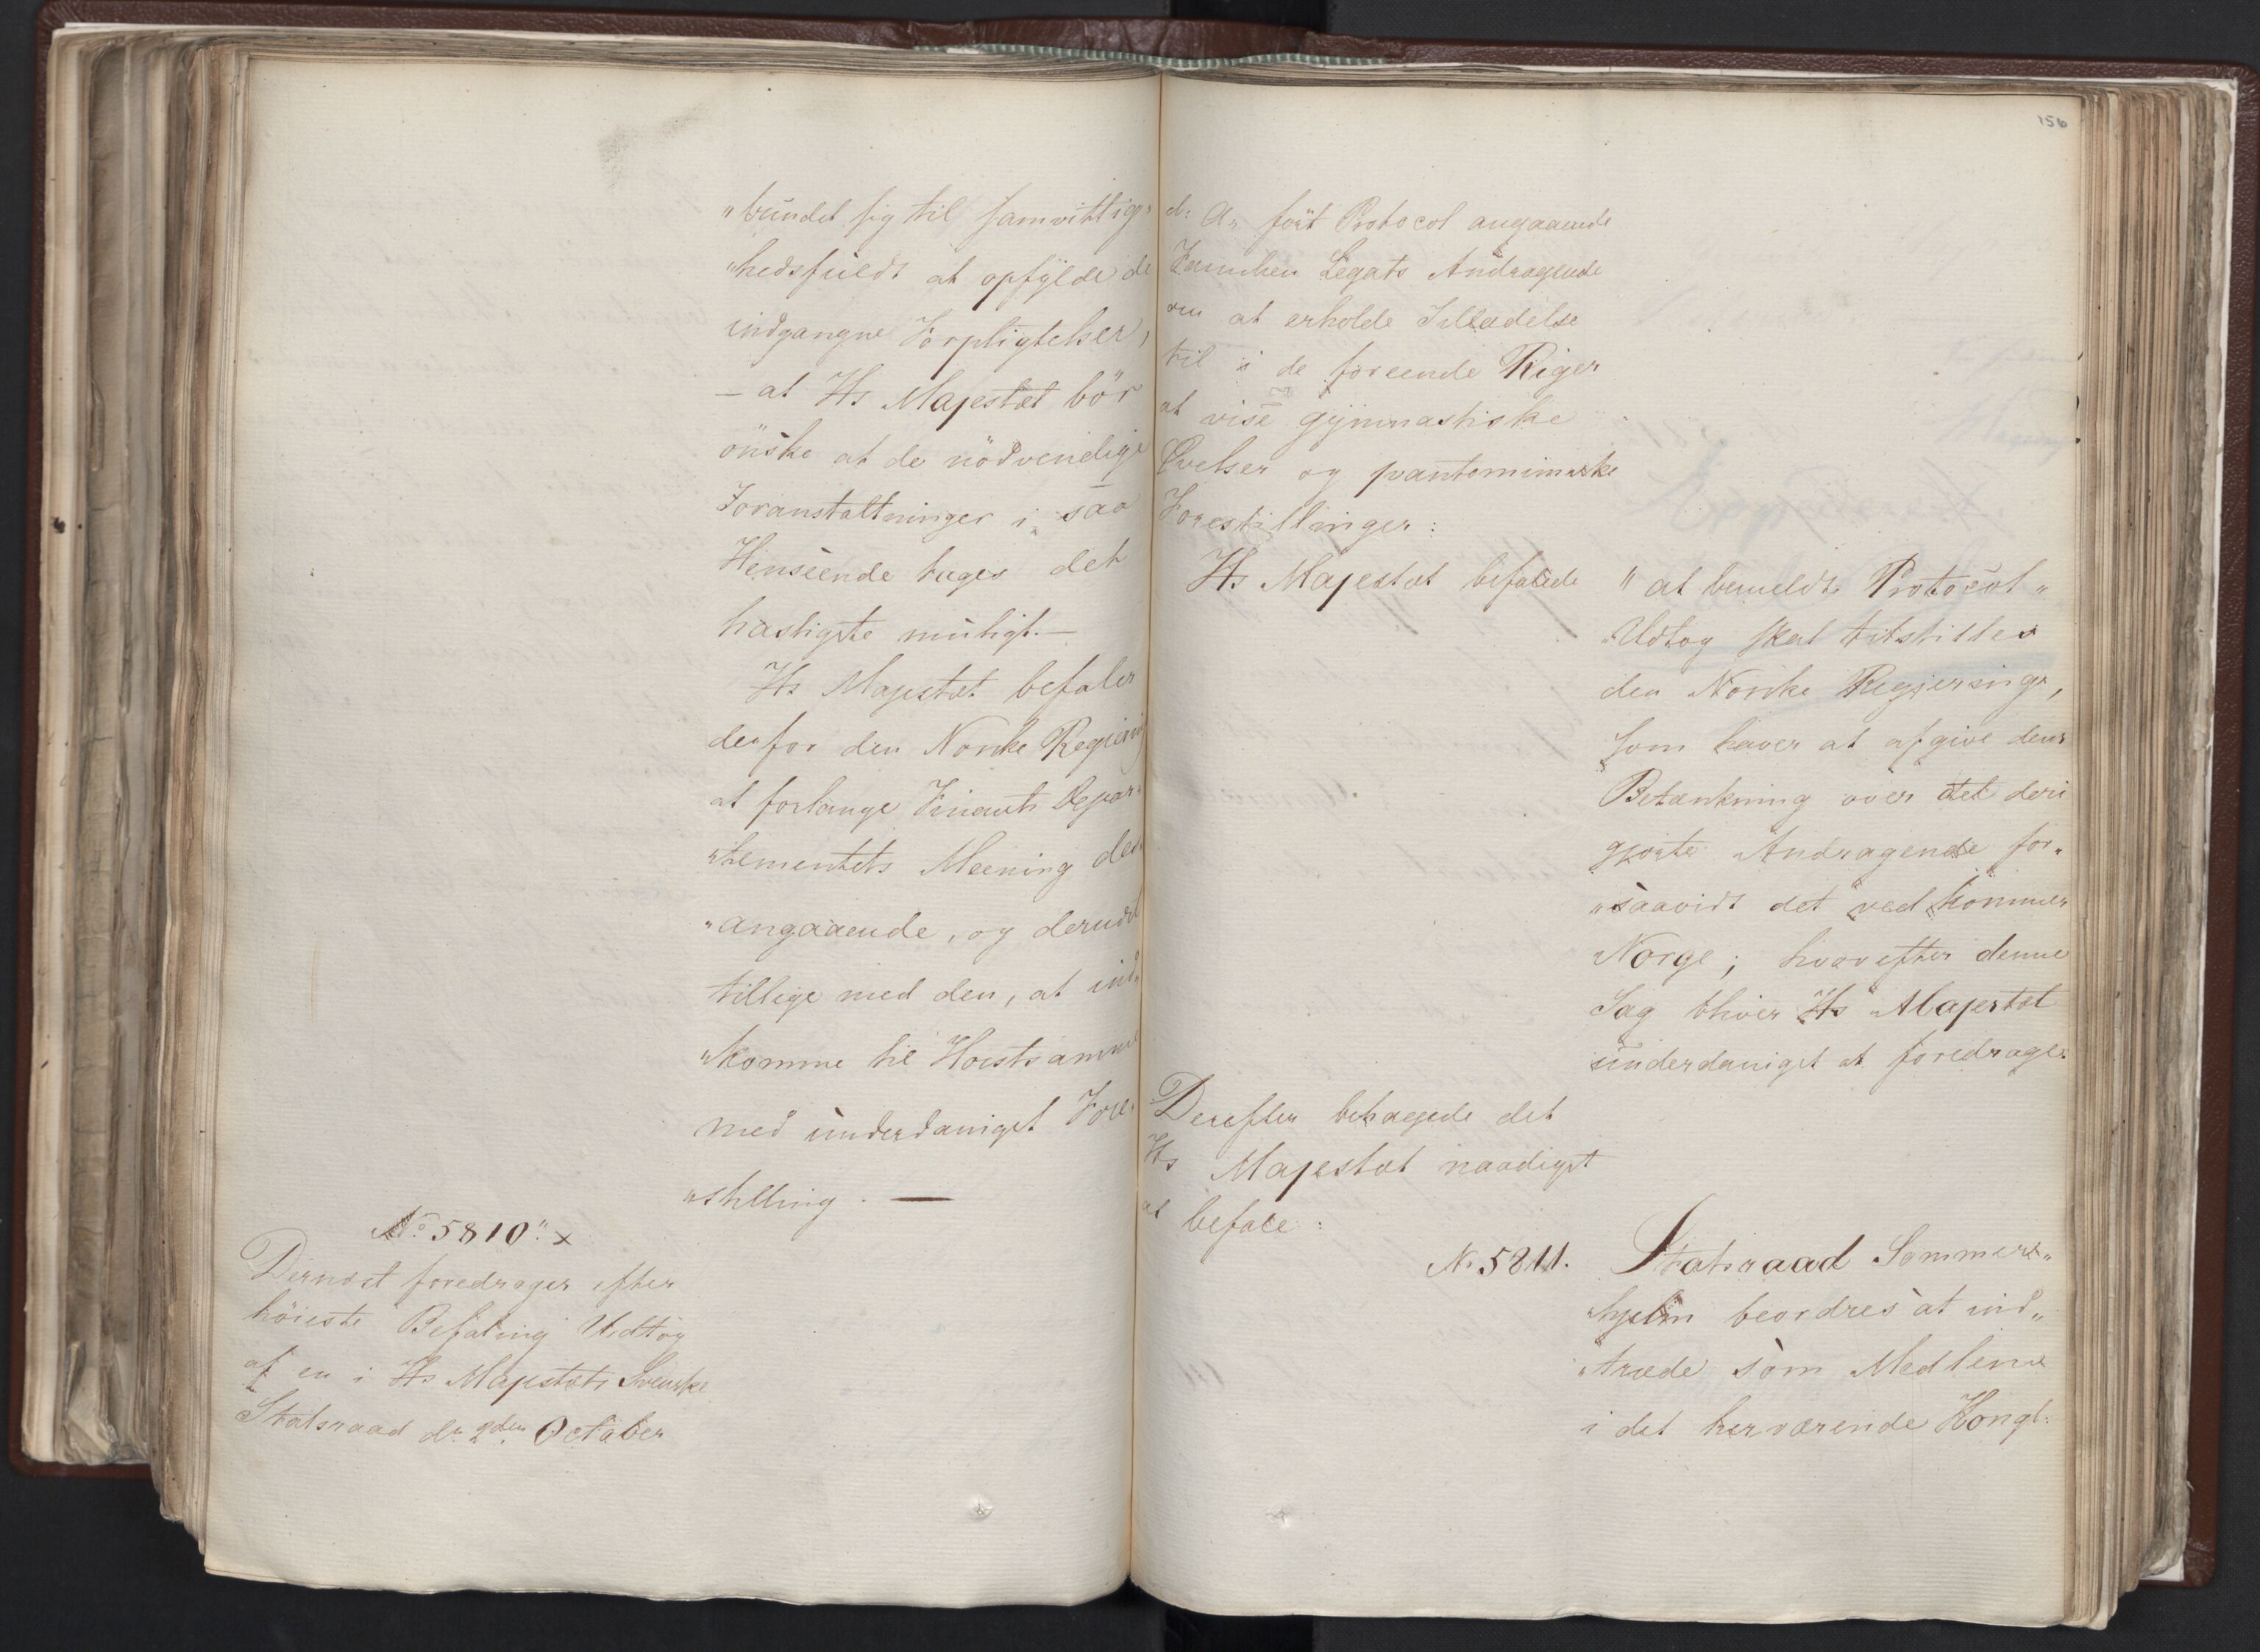 "bundet sig til samvittig"
"hedsfuldt at opfylde de
indgangne Forpligtelser,
– at Hs Majestæt bör
önske at de nödvendige
Foranstaltninger i saa
Henseende tages det
hastigste muligt. –
Hs Majestæt befaler
derfor den Norske Regiering
at forlange Finants Depar"
"tementets Meening der"
"angaaende, og derudi
tillige med den, at ind"
"komme til Höistsamme
med underdanigst Fore"
"stilling. —
No 5810" x
Dernæst foredrages efter
höieste Befaling Udtog
af en i Hs Majestæts Svenske
Statsraad dn 2den October
156
d: A: fört Protocol angaaende
Familien Legats Andragende
om at erholde Tilladelse
til i de foreende Riger
at vise gymnastiske
Övelser og pantomimiske
Forestillinger:
Hs Majestæt befalede
" at bemeldte Protocol"
"Udtog skal tilstilles
den Norske Regjering,
som haver at afgive dens
Betænkning over det deri
gjorte Andragende for"
"saavidt det ved kommer
Norge; hvorefter denne
Sag bliver Hs Majestæt
underdanigst at foredrage.
Derefter behagede det
Hs Majestæt naadigst
at befale:
No 5811. Statsraad Sommers"
"hjelm beordres at ind"
"træde som Medlem
i det herværende Kongl: